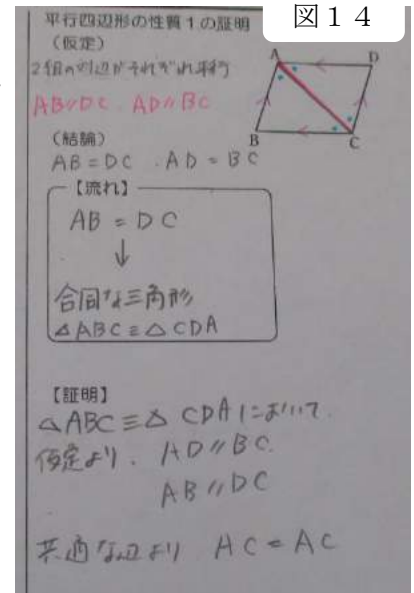 図14
平行四辺形の性質1の証明
(仮定)
2組の対辺がそれぞれ平行
AB//DC . AD//BC
A
D
B
C
(結論)
AB=DC .AD=BC
【流れ】
AB = DC
↓
合同な三角形
△ABC≡△CDA
【証明】
△ABC≡△CDAにおいて.
仮定より. AD//BC.
AB//DC
共通な辺より AC=AC